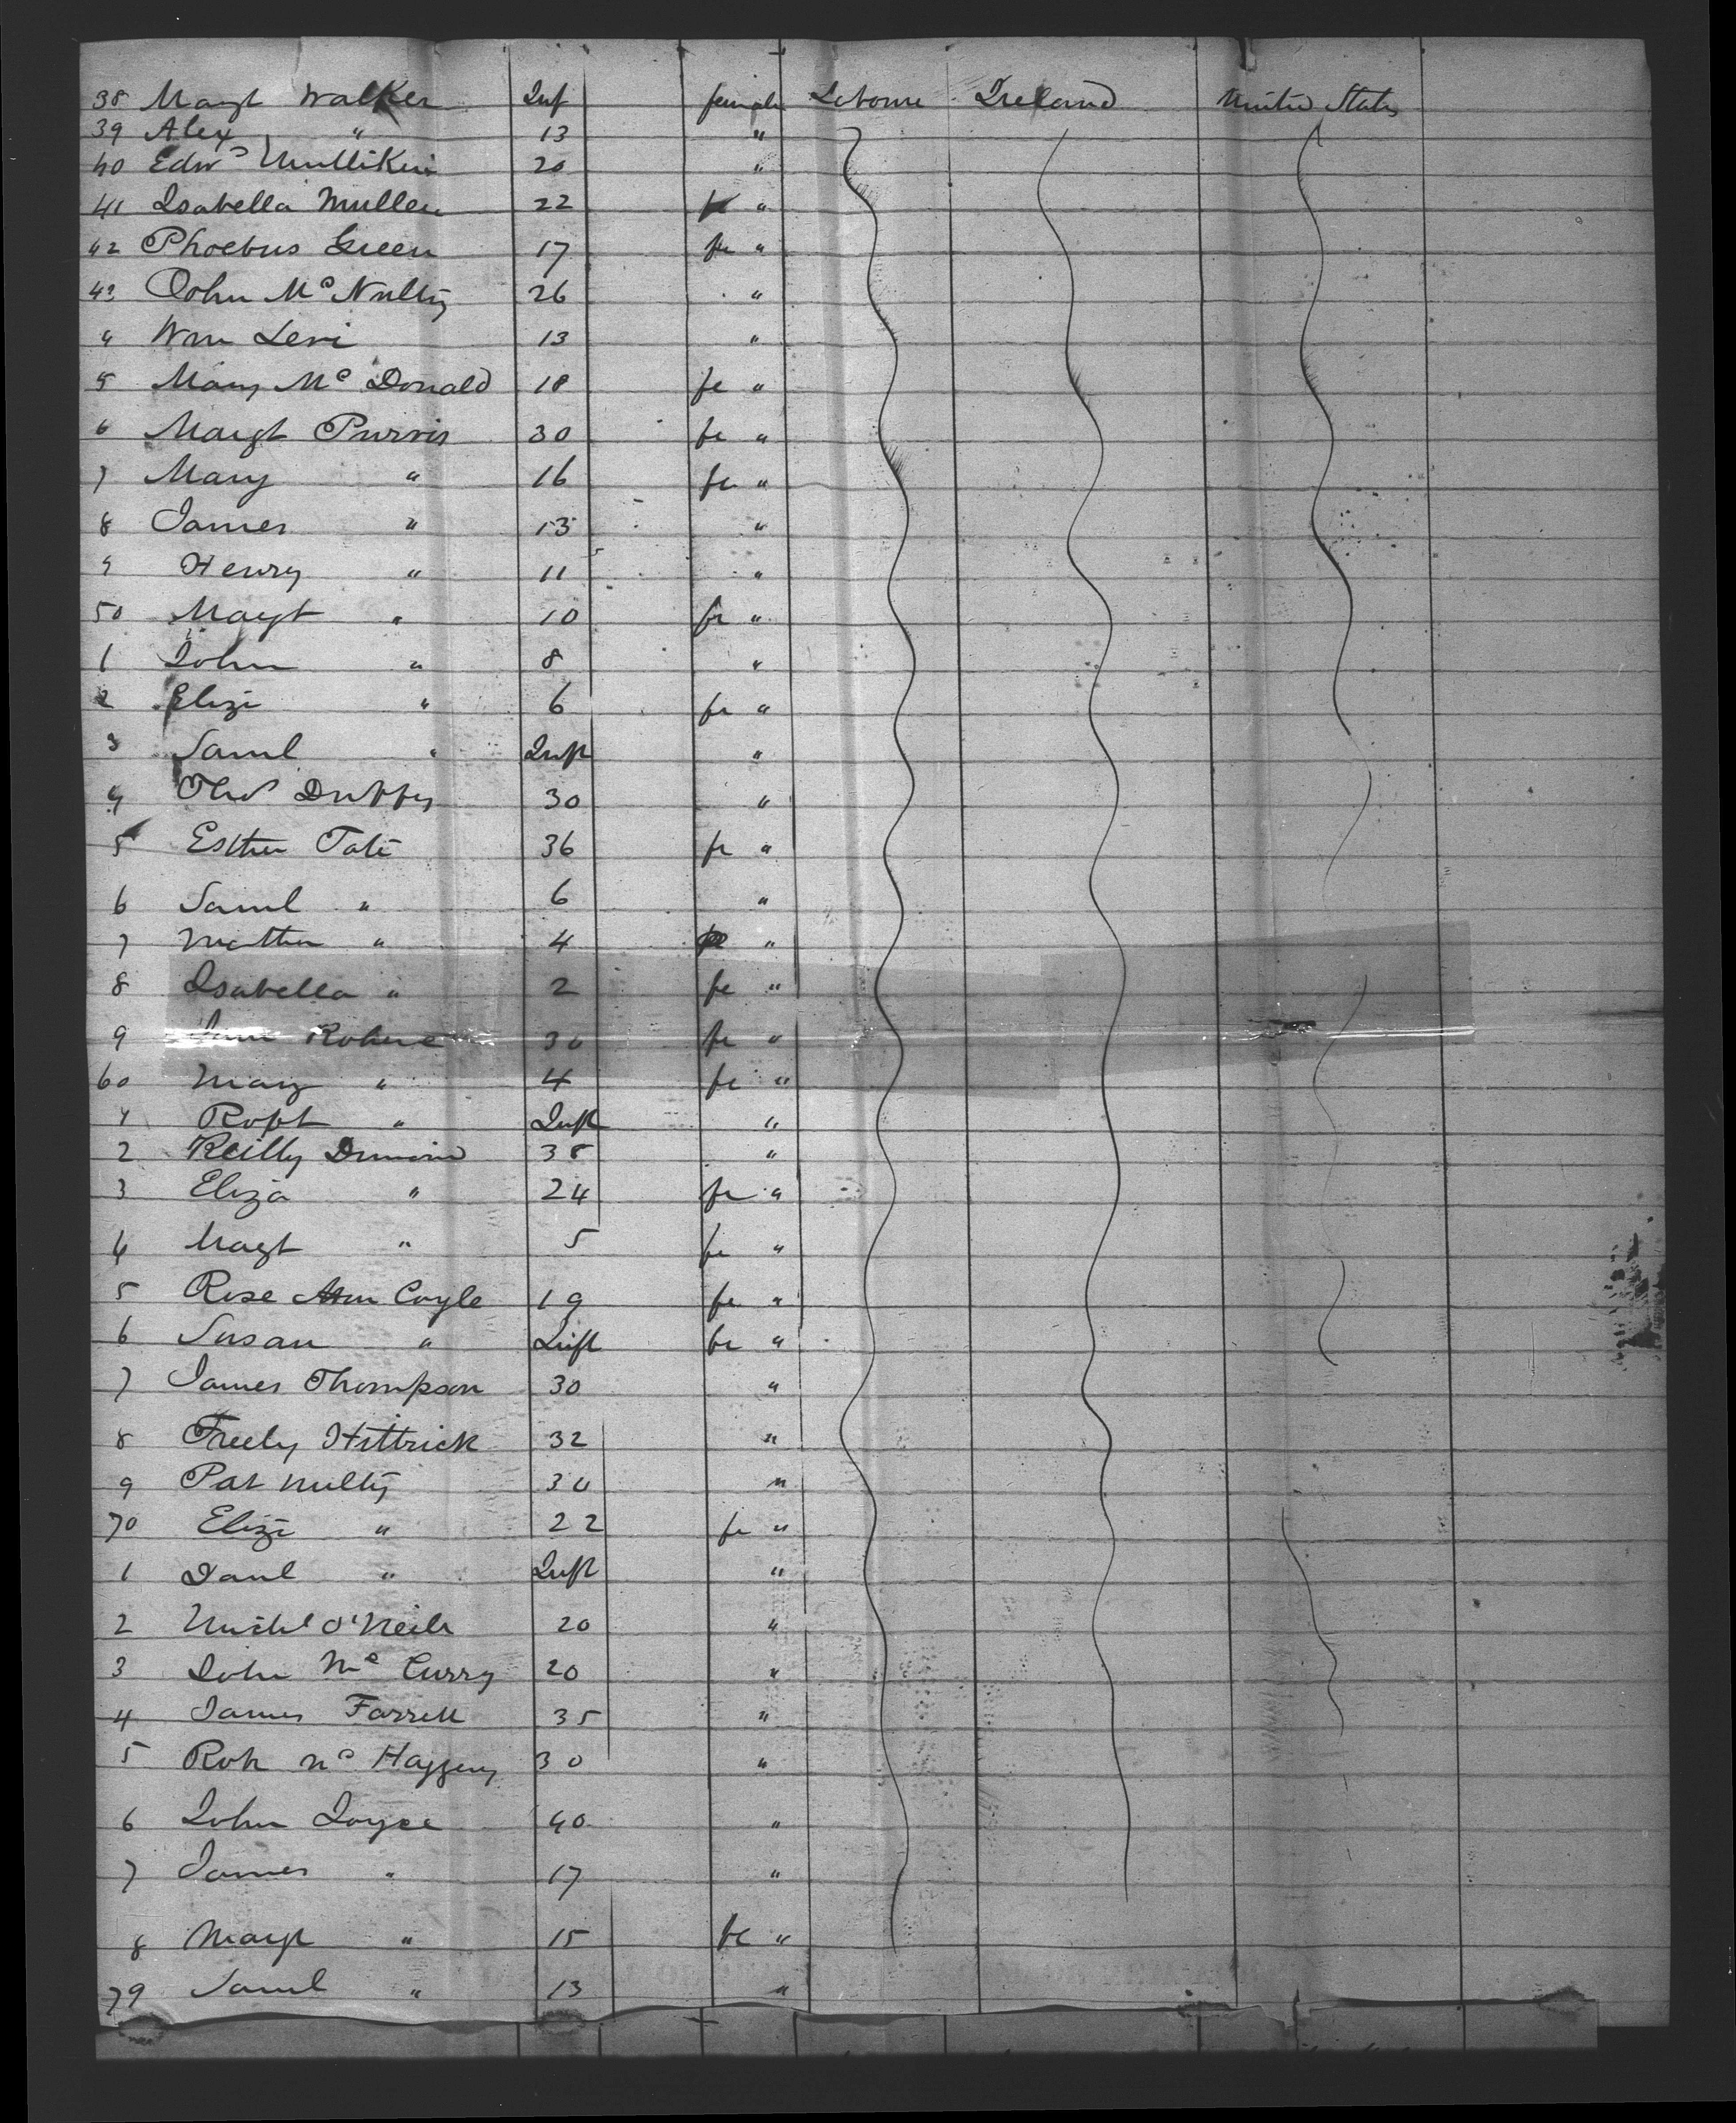 38 Margt Walker Inf female Labourer Ireland United States
39 Alex " 13 "
40 Edwd Mullikin 20 "
41 Isabella Mullen 22 fe "
42 Phoebus Green 17 fe "
43 John Mc Nulty 26 "
4 Wm Levi 13 "
5 Mary Mc Donald 18 fe "
6 Margt Purvis 30 fe "
7 Mary " 16 fe "
8 James " 13 "
9 Henry " 11 "
50 Margt " 10 fe "
1 John " 8 "
2 Eliza " 6 fe "
3 Saml " Inft "
4 Duffy 30 "
5 Esther Tate 36 fe "
6 Saml " 6 "
7 " 4 "
8 Isabella " 2 fe "
9 Jane 30 fe "
60 Mary " 4 fe "
1 Robt " Inft "
2 Reilly 38 "
3 Eliza " 24 fe "
4 Margt " 5 fe "
5 Rose Ann Coyle 19 fe "
6 Susan " Inft fe "
7 James Thompson 30 "
8 Freely Hittrick 32 "
9 Pat Nulty 30 "
70 Eliza " 22 fe "
1 Danl " Inft "
2 Michl O'Neile 20 "
3 John Mc Curry 20 "
4 James Farrell 35 "
5 Robt Mc 30 "
6 John Joyce 40 "
7 James " 17 "
8 Margt " 15 fe "
79 Saml " 13 "